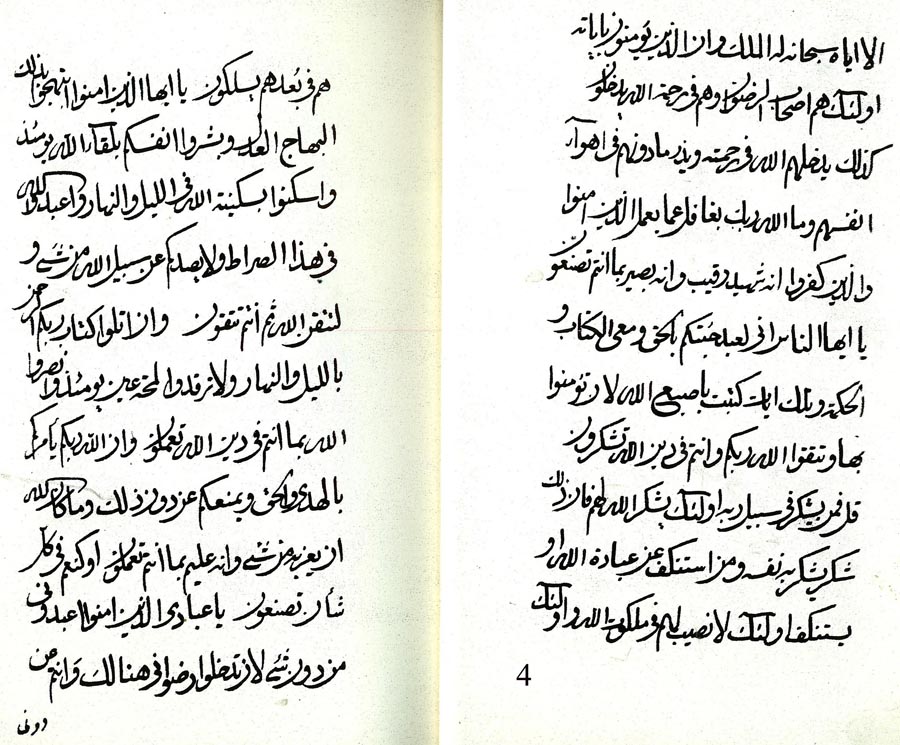 الا اياه سبحانه له الملك وان الذين يؤمنون باياته
اولئك هم اصحاب الرضوان وهم في رحمة الله يدخلون
كذلك يدخلهم الله في رحمته ويذر مادونهم في اهواء
انفسهم وما الله ربك بغافل عما يعمل الذين امنوا
والذين كفروا انه شهيد رقيب وانه بصير بما انتم تصنعون
يا ايها الناس اني لعبد جئتكم بالحق ومعي الكتاب و
الحكمة وتلك ايات كتبت باصبع الله لان تؤمنوا
بها وتتقوا الله ربكم وانتم في دين الله تشكرون
قل فمن يشكر في سبيل ربه اولئك يشكر الله لهم فان ذلك
شكر يشكر به نفسه ومن استنكف عن عبادة الله او
يستنكف اولئك لا نصيب لهم في ملكوت الله واولئك
4
هم في بعدهم يسلكون يا ايها الذين امنوا ابتهجوا بذلك
البهاج العدل وبشروا انفسكم بلقاء الله يومئذ
واسكنوا بسكينة الله في الليل والنهار واعبدوا الله
في هذا الصراط ولا يصدكم عن سبيل الله من شئ و
لتتقن الله ثم انتم تتقون وان اتلوا كتاب ربكم
بالليل والنهار ولا ترقدوا يومئذ وانصروا
الله بما انتم في دين الله تعملون وان الله ربكم يأمركم
بالهدى والحق ويمنعكم عن دون ذلك وما كان الله
ان يعزب من شئ وانه عليم بما انتم تعملون او كنتم في كل
شأن تصنعون يا عبادي الذين امنوا اعبدوني
من دون شئ لان تدخلوا رضواني هنالك وانتم من
دوني